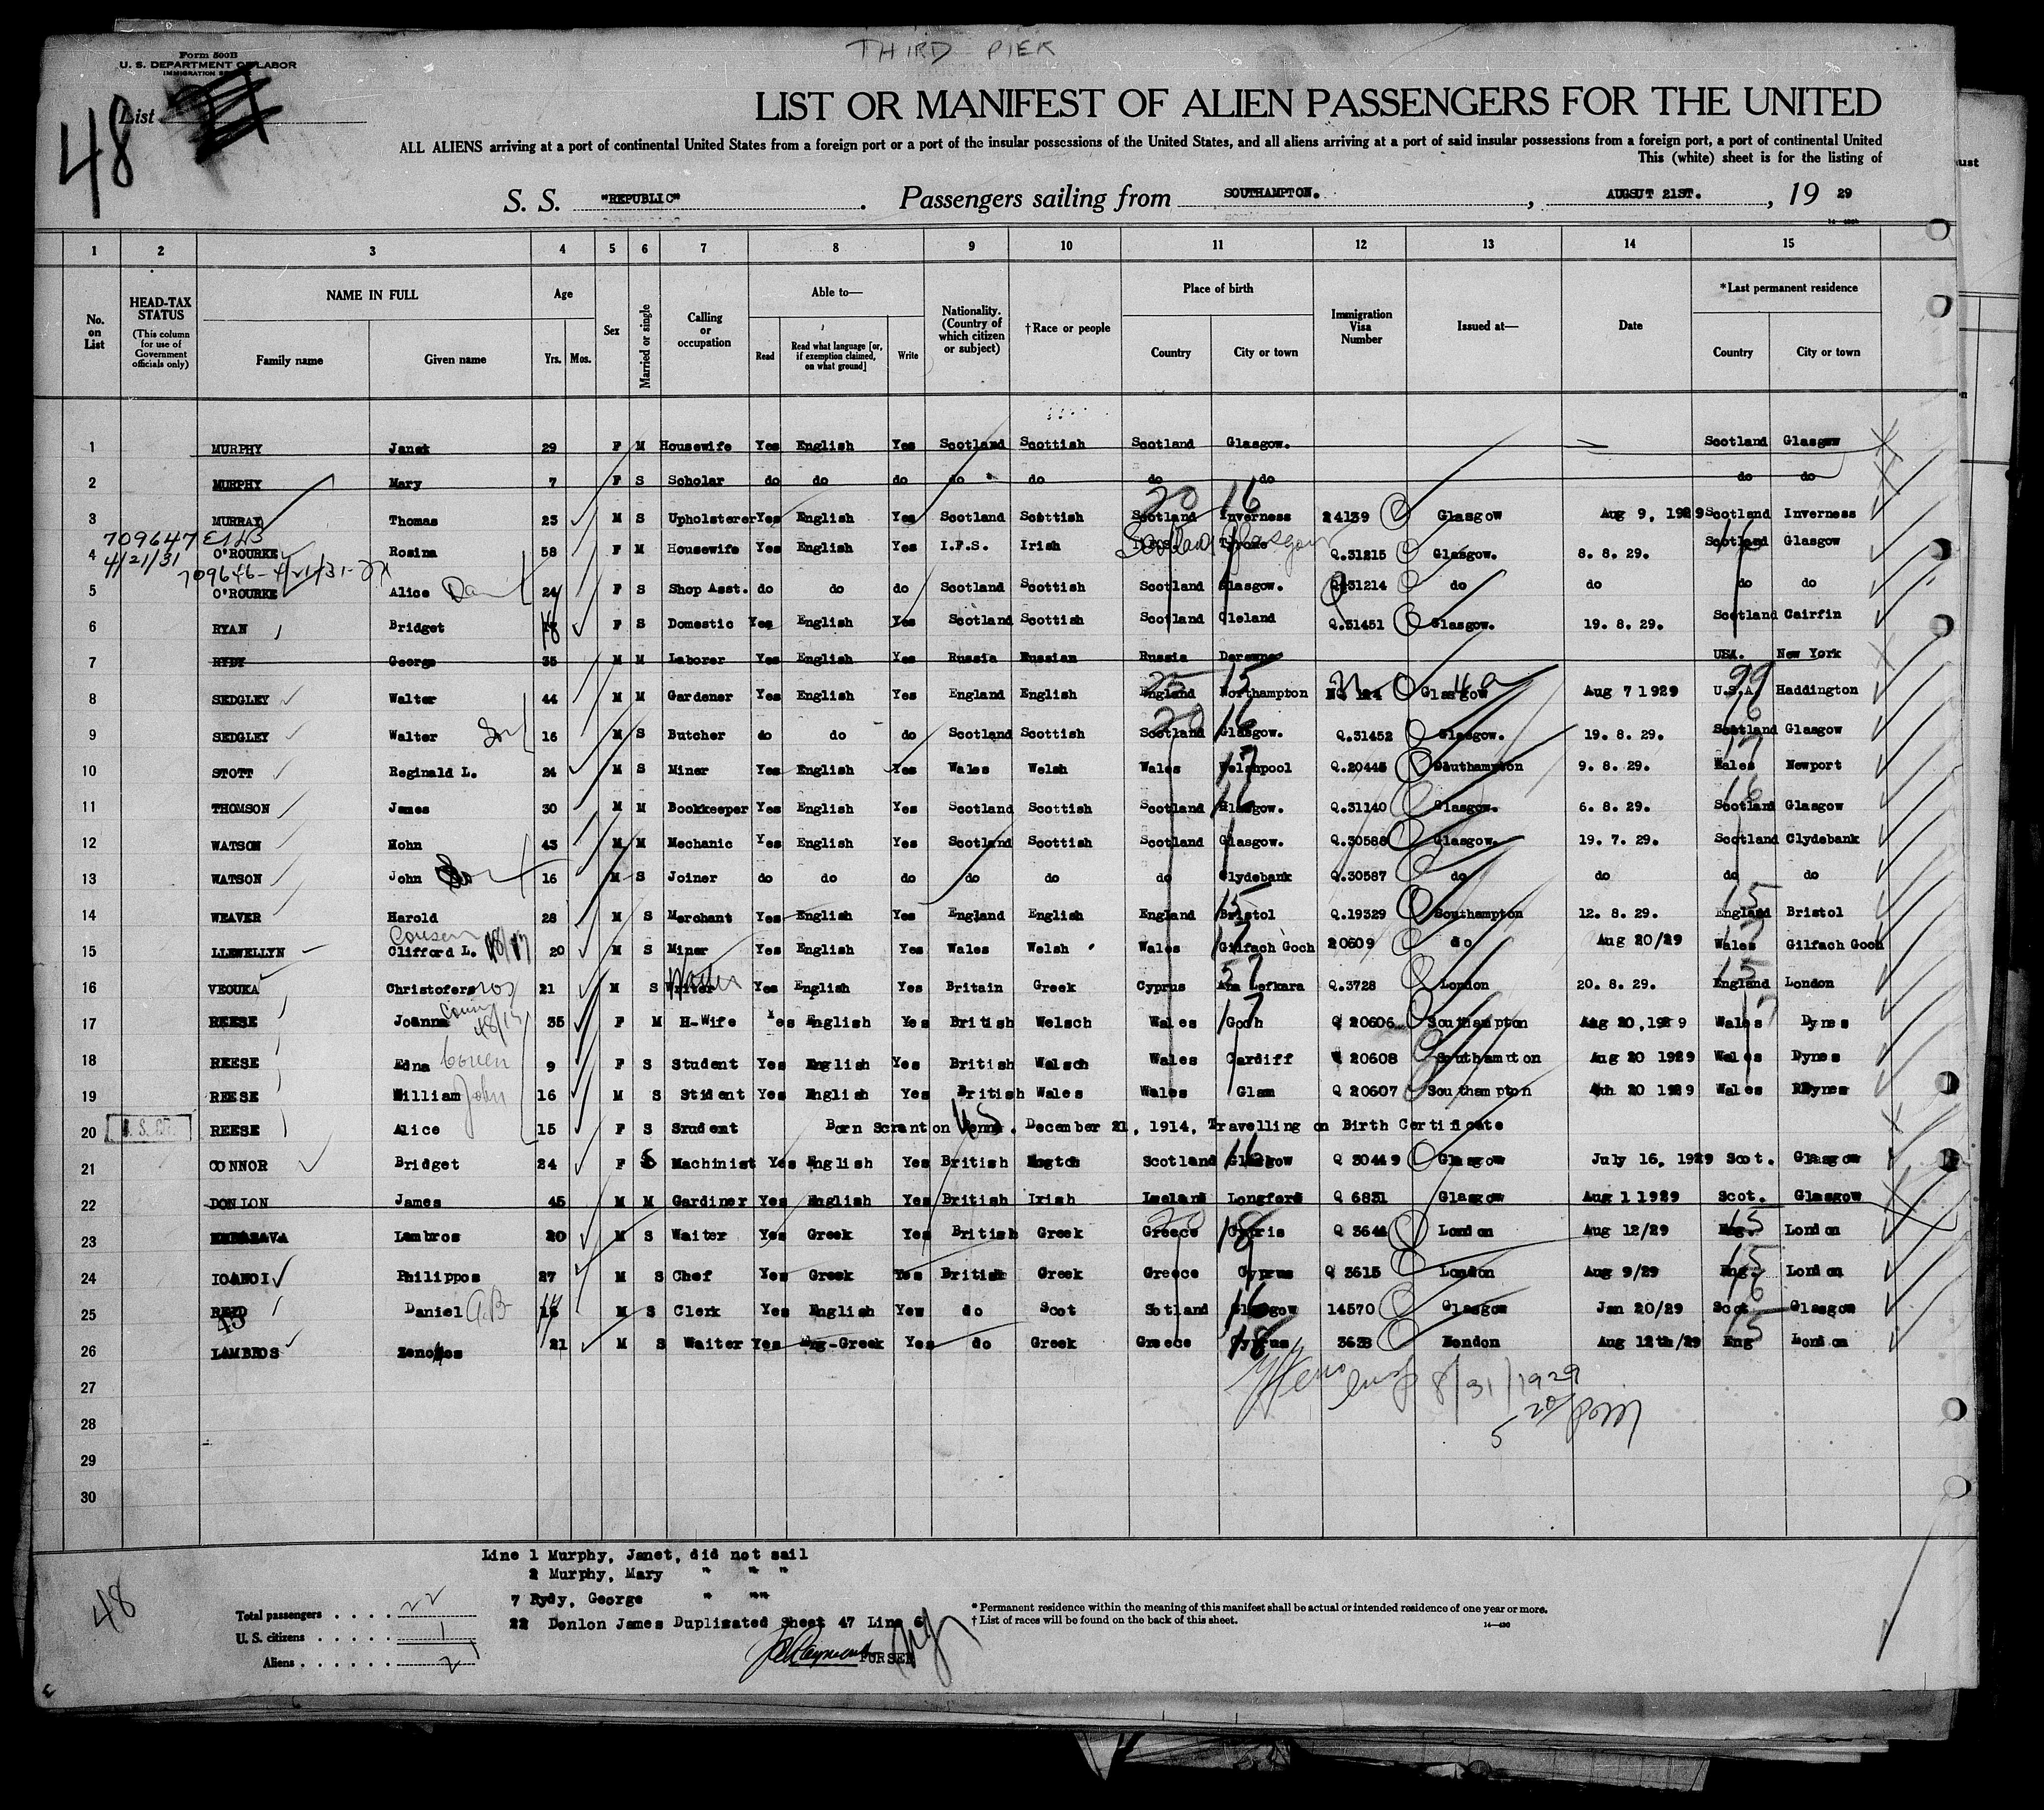 THIRD PIER
Form 500B
U. S. DEPARTMENT OF LABOR
IMMIGRATION SERVICE
List
48
LIST OR MANIFEST OF ALIEN PASSENGERS FOR THE UNITED
ALL ALIENS arriving at a port of continental United States from a foreign port or a port of the insular possessions of the United States, and all aliens arriving at a port of said insular possessions from a foreign port, a port of continental United
This (white) sheet is for the listing of
S. S. "REPUBLIC". Passengers sailing from SOUTHAMPTON., AUGSUT 21ST., 19 29
1 2 3 4 5 6 7 8 9 10 11 12 13 14 15
No. on List
HEAD-TAX STATUS
(This column for use of Government officials only)
NAME IN FULL
Family name Given name
Age
Yrs. Mos.
Sex
Married or single
Calling or occupation
Able to—
Read Read what language [or, if exemption claimed, on what ground] Write
Nationality. (Country of which citizen or subject)
†Race or people
Place of birth
Country City or town
Immigration Visa Number
Issued at—
Date
*Last permanent residence
Country City or town
1 MURPHY Janet 29 F M Housewife Yes English Yes Scotland Scottish Scotland Glasgow. Scotland Glasgow
2 MURPHY Mary 7 F S Scholar do do do do do do do do do
20 16
3 MURRAY Thomas 23 M S Upholsterer Yes English Yes Scotland Scottish Scotland Inverness 24139 Glasgow Aug 9, 1929 Scotland Inverness
709647
4/21/31
4 O'ROURKE Rosina 58 F M Housewife Yes English Yes I.F.S. Irish Scotland Glasgow Tyrone Q.31215 Glasgow. 8. 8. 29. Scotland Glasgow
709646-4/21/31-
5 O'ROURKE Alice 24 F S Shop Asst. do do do Scotland Scottish Scotland Glasgow. Q.31214 do do do do
6 RYAN Bridget 18 F S Domestic Yes English Yes Scotland Scottish Scotland Cleland Q.31451 Glasgow. 19. 8. 29. Scotland Cairfin
7 RYDY George 35 M M Laborer Yes English Yes Russia Russian Russia USA. New York
25 15 99
8 SEDGLEY Walter 44 M M Gardener Yes English Yes England English England Northampton Glasgow Aug 7 1929 U.S.A. Haddington
20 16
9 SEDGLEY Walter Son 16 M S Butcher do do do Scotland Scottish Scotland Glasgow. Q.31452 Glasgow. 19. 8. 29. Scotland Glasgow
10 STOTT Reginald L. 24 M S Miner Yes English Yes Wales Welsh Wales Welshpool Q.20445 Southampton 9. 8. 29. Wales Newport
11 THOMSON James 30 M M Bookkeeper Yes English Yes Scotland Scottish Scotland Glasgow. Q.31140 Glasgow. 6. 8. 29. Scotland Glasgow
12 WATSON Hohn 43 M M Mechanic Yes English Yes Scotland Scottish Scotland Glasgow. Q.30588 Glasgow. 19. 7. 29. Scotland Clydebank
13 WATSON John 16 M S Joiner do do do do do do Clydebank Q.30587 do do do do
14 WEAVER Harold 28 M S Merchant Yes English Yes England English England Bristol Q.19329 Southampton 12. 8. 29. England Bristol
15 LLEWELLYN Clifford L. 20 M S Miner Yes English Yes Wales Welsh Wales Gilfach Goch 20609 do Aug 20/29 Wales Gilfach Goch
16 VEOUKA Christoferos 21 M S Writer Waiter Yes English Yes Britain Greek Cyprus Ana Lefkara Q.3728 London 20. 8. 29. England London
17 REESE Joanna 35 F M H-Wife Yes English Yes British Welsch Wales Goch Q 20606 Southampton Aug 20,1929 Wales Dynes
18 REESE Edna 9 F S Student Yes English Yes British Welsch Wales Cardiff 20608 Southamton Aug 20 1929 Wales Dynes
19 REESE William John 16 M S Stident Yes English Yes British Wales Wales Glam Q 20607 Southampton 20 1929 Wales Dynes
20 REESE Alice 15 F S Srudent Born Scranton Penna. December 21, 1914, Travelling on Birth Certificate
21 CONNOR Bridget 24 F S Machinist Yes English Yes British Scotland Glasgow Q 30449 Glasgow July 16, 1929 Scot. Glasgow
22 DONLON James 45 M M Gardiner Yes English Yes British Irish Ireland Longford Q 6831 Glasgow Aug 1 1929 Scot. Glasgow
23 Lambros 20 M S Waiter Yes Greek Yes British Greek Greece Cypris Q 3644 London Aug 12/29 Eng. London
24 IOANOI Philippos 27 M S Chef Yes Greek Yes British Greek Greece Cyprus Q 3615 London Aug 9/29 Eng. London
25 REID Daniel A.B M S Clerk Yes English Yes do Scot Sotland Glasgow 14570 Glasgow Jan 20/29 Scot Glasgow
26 LAMBROS Zenonos 21 M S Waiter Yes Eng-Greek Yes do Greek Greece Cyprus 3638 London Aug 12th/29 Eng London
27 8/31/1929
28
29
30
Line 1 Murphy, Janet, did not sail
2 Murphy, Mary " " "
7 Rydy, George " ""
22 Donlon James Duplisated Sheet 47 Line 6
PURSER
48
Total passengers . . . . 22
U. S. citizens . . . . . 1
Aliens . . . . . . 21
* Permanent residence within the meaning of this manifest shall be actual or intended residence of one year or more.
† List of races will be found on the back of this sheet.
14—430